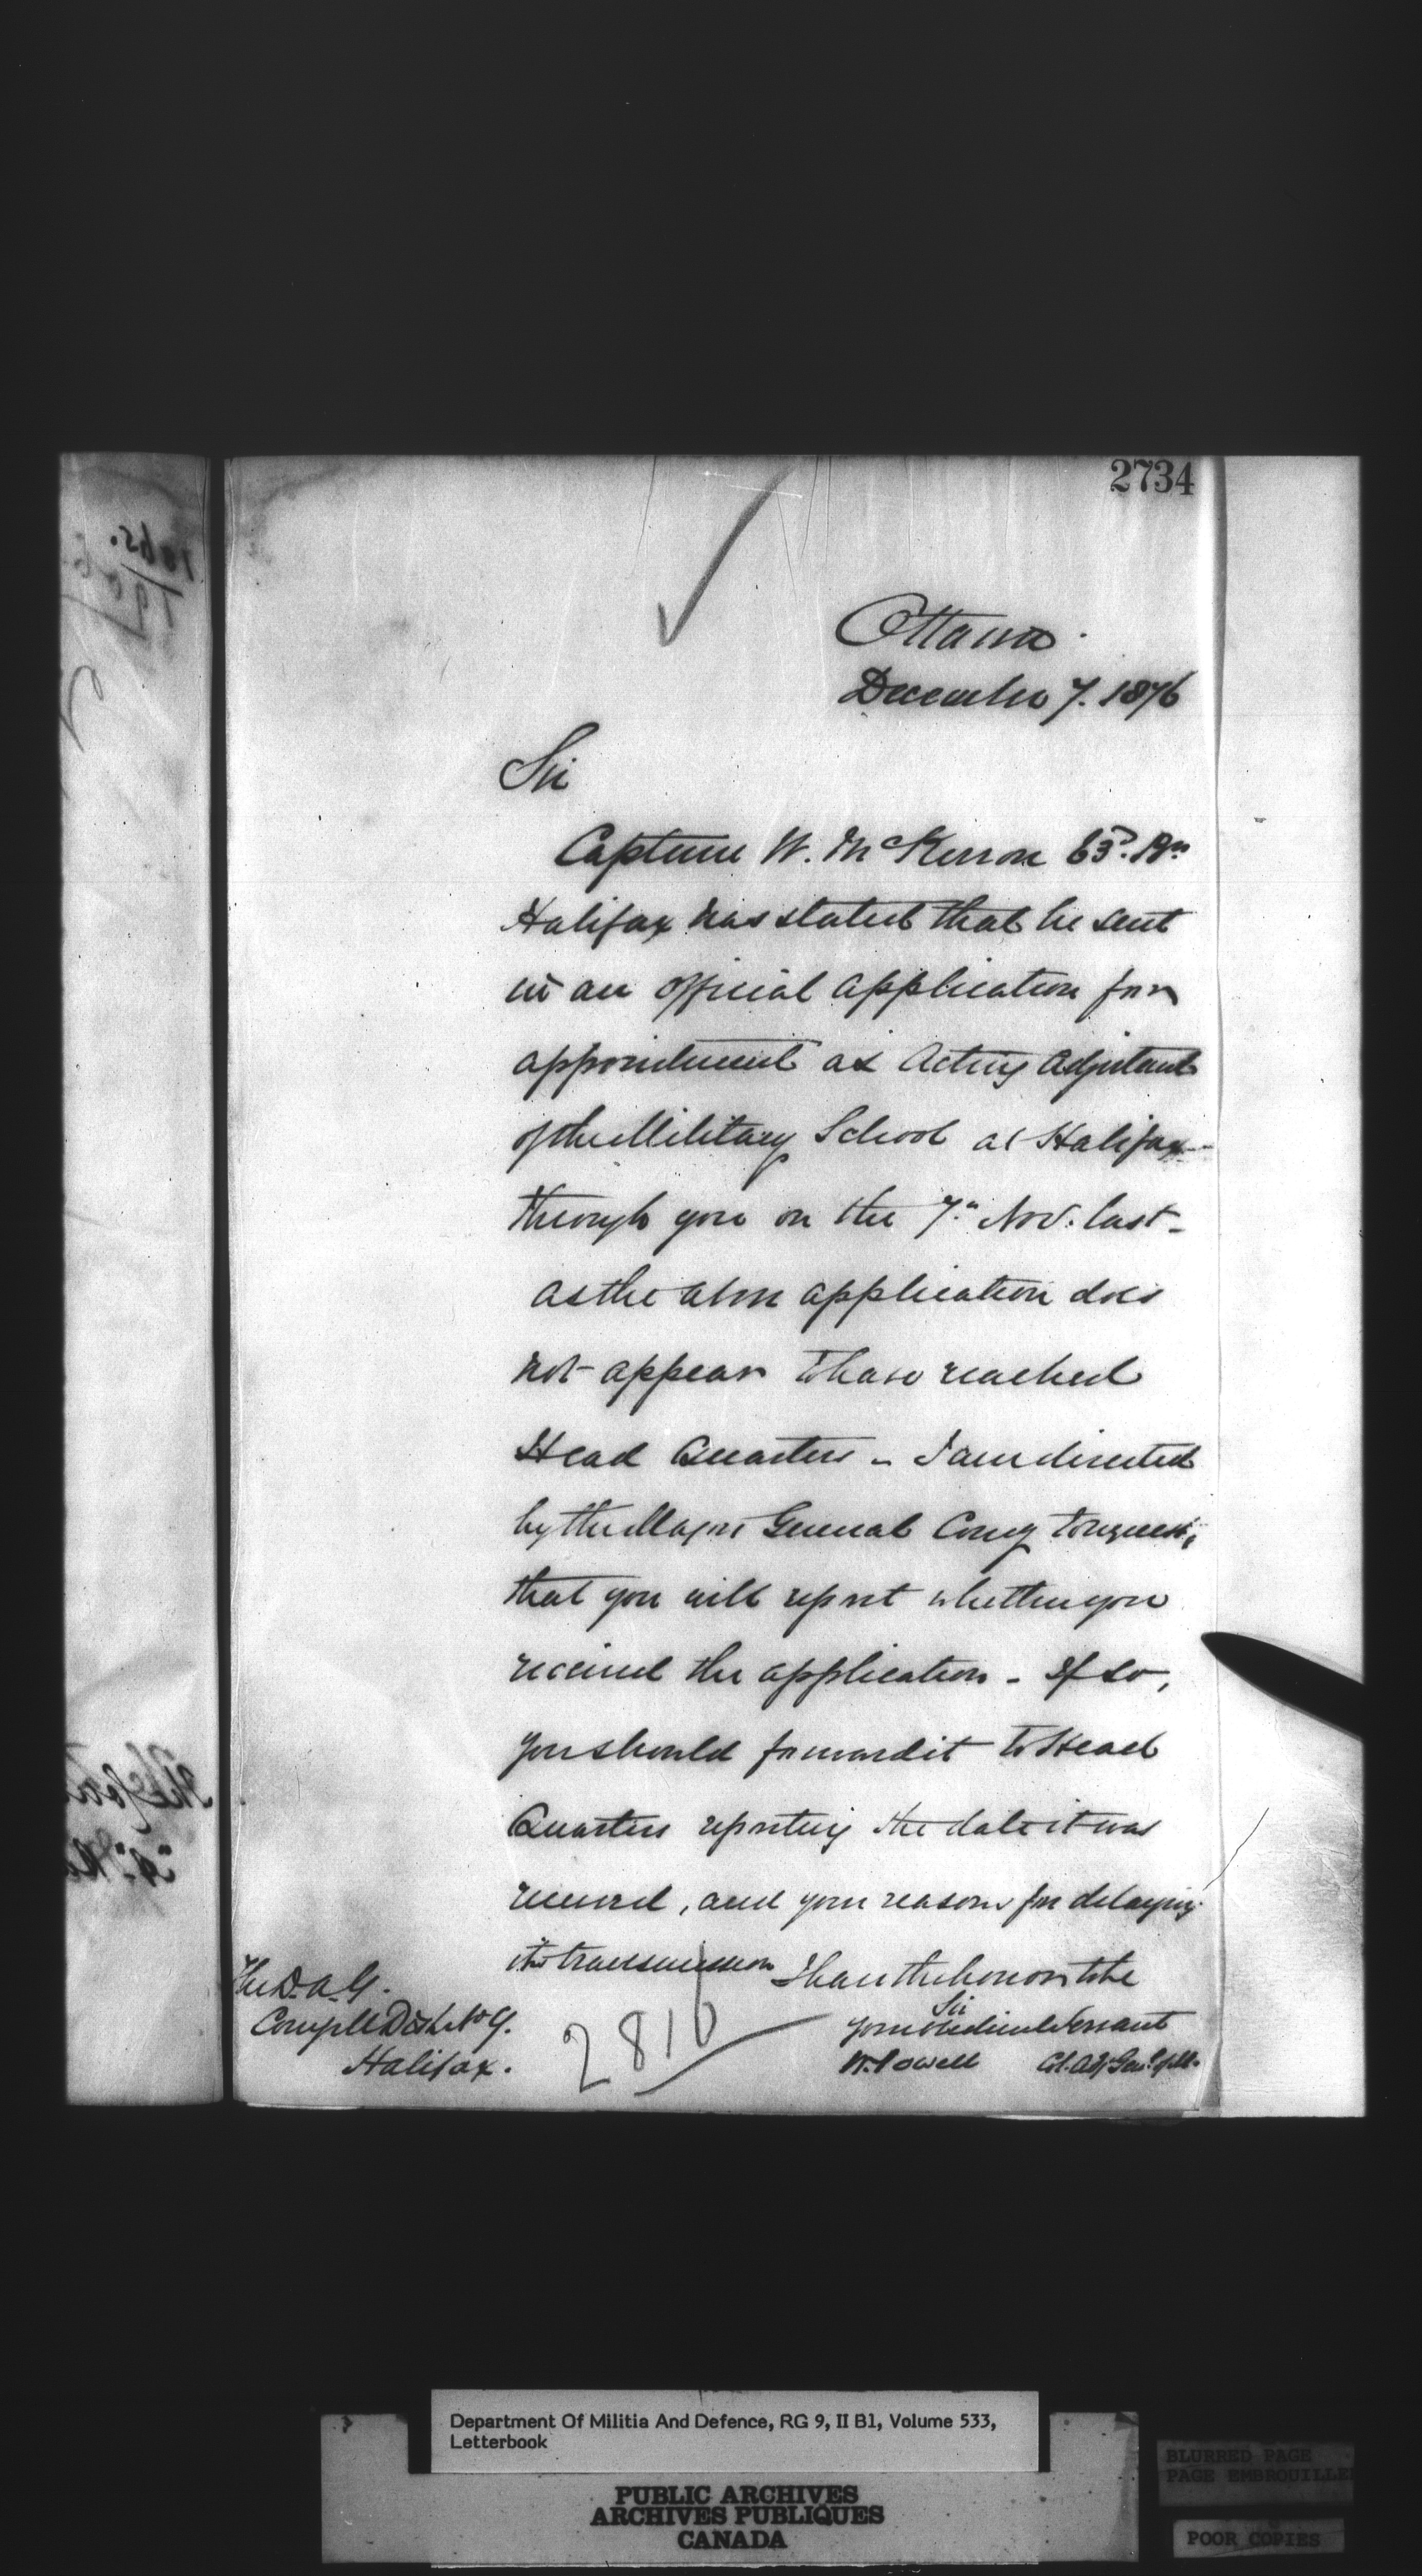 2734
Ottawa.
December 7. 1876
Sir
Captain W. McKerron 63d. Bn
Halifax has stated that he sent
in an official application for
appointment as Acting Adjutant
of the Military School at Halifax
through you on the 7th Nov. last-
As the above application does
not appear to have reached
Head Quarters - I am directed
by the Major General Comg to request,
that you will report whether you
received the application - If so,
you should forward it to Head
Quarters reporting the date it was
received, and your reasons for delaying
its transmission
I have the honor to be
Sir
Your obedient Servant
W. Powell Col. Adj. Genl. of M.
The D.A.G.
Comg Mil. Dist. No 9.
Halifax.
2816
Department Of Militia And Defence, RG 9, II B1, Volume 533,
Letterbook
PUBLIC ARCHIVES
ARCHIVES PUBLIQUES
CANADA
BLURRED PAGE
PAGE EMBROUILLEE
POOR COPIES